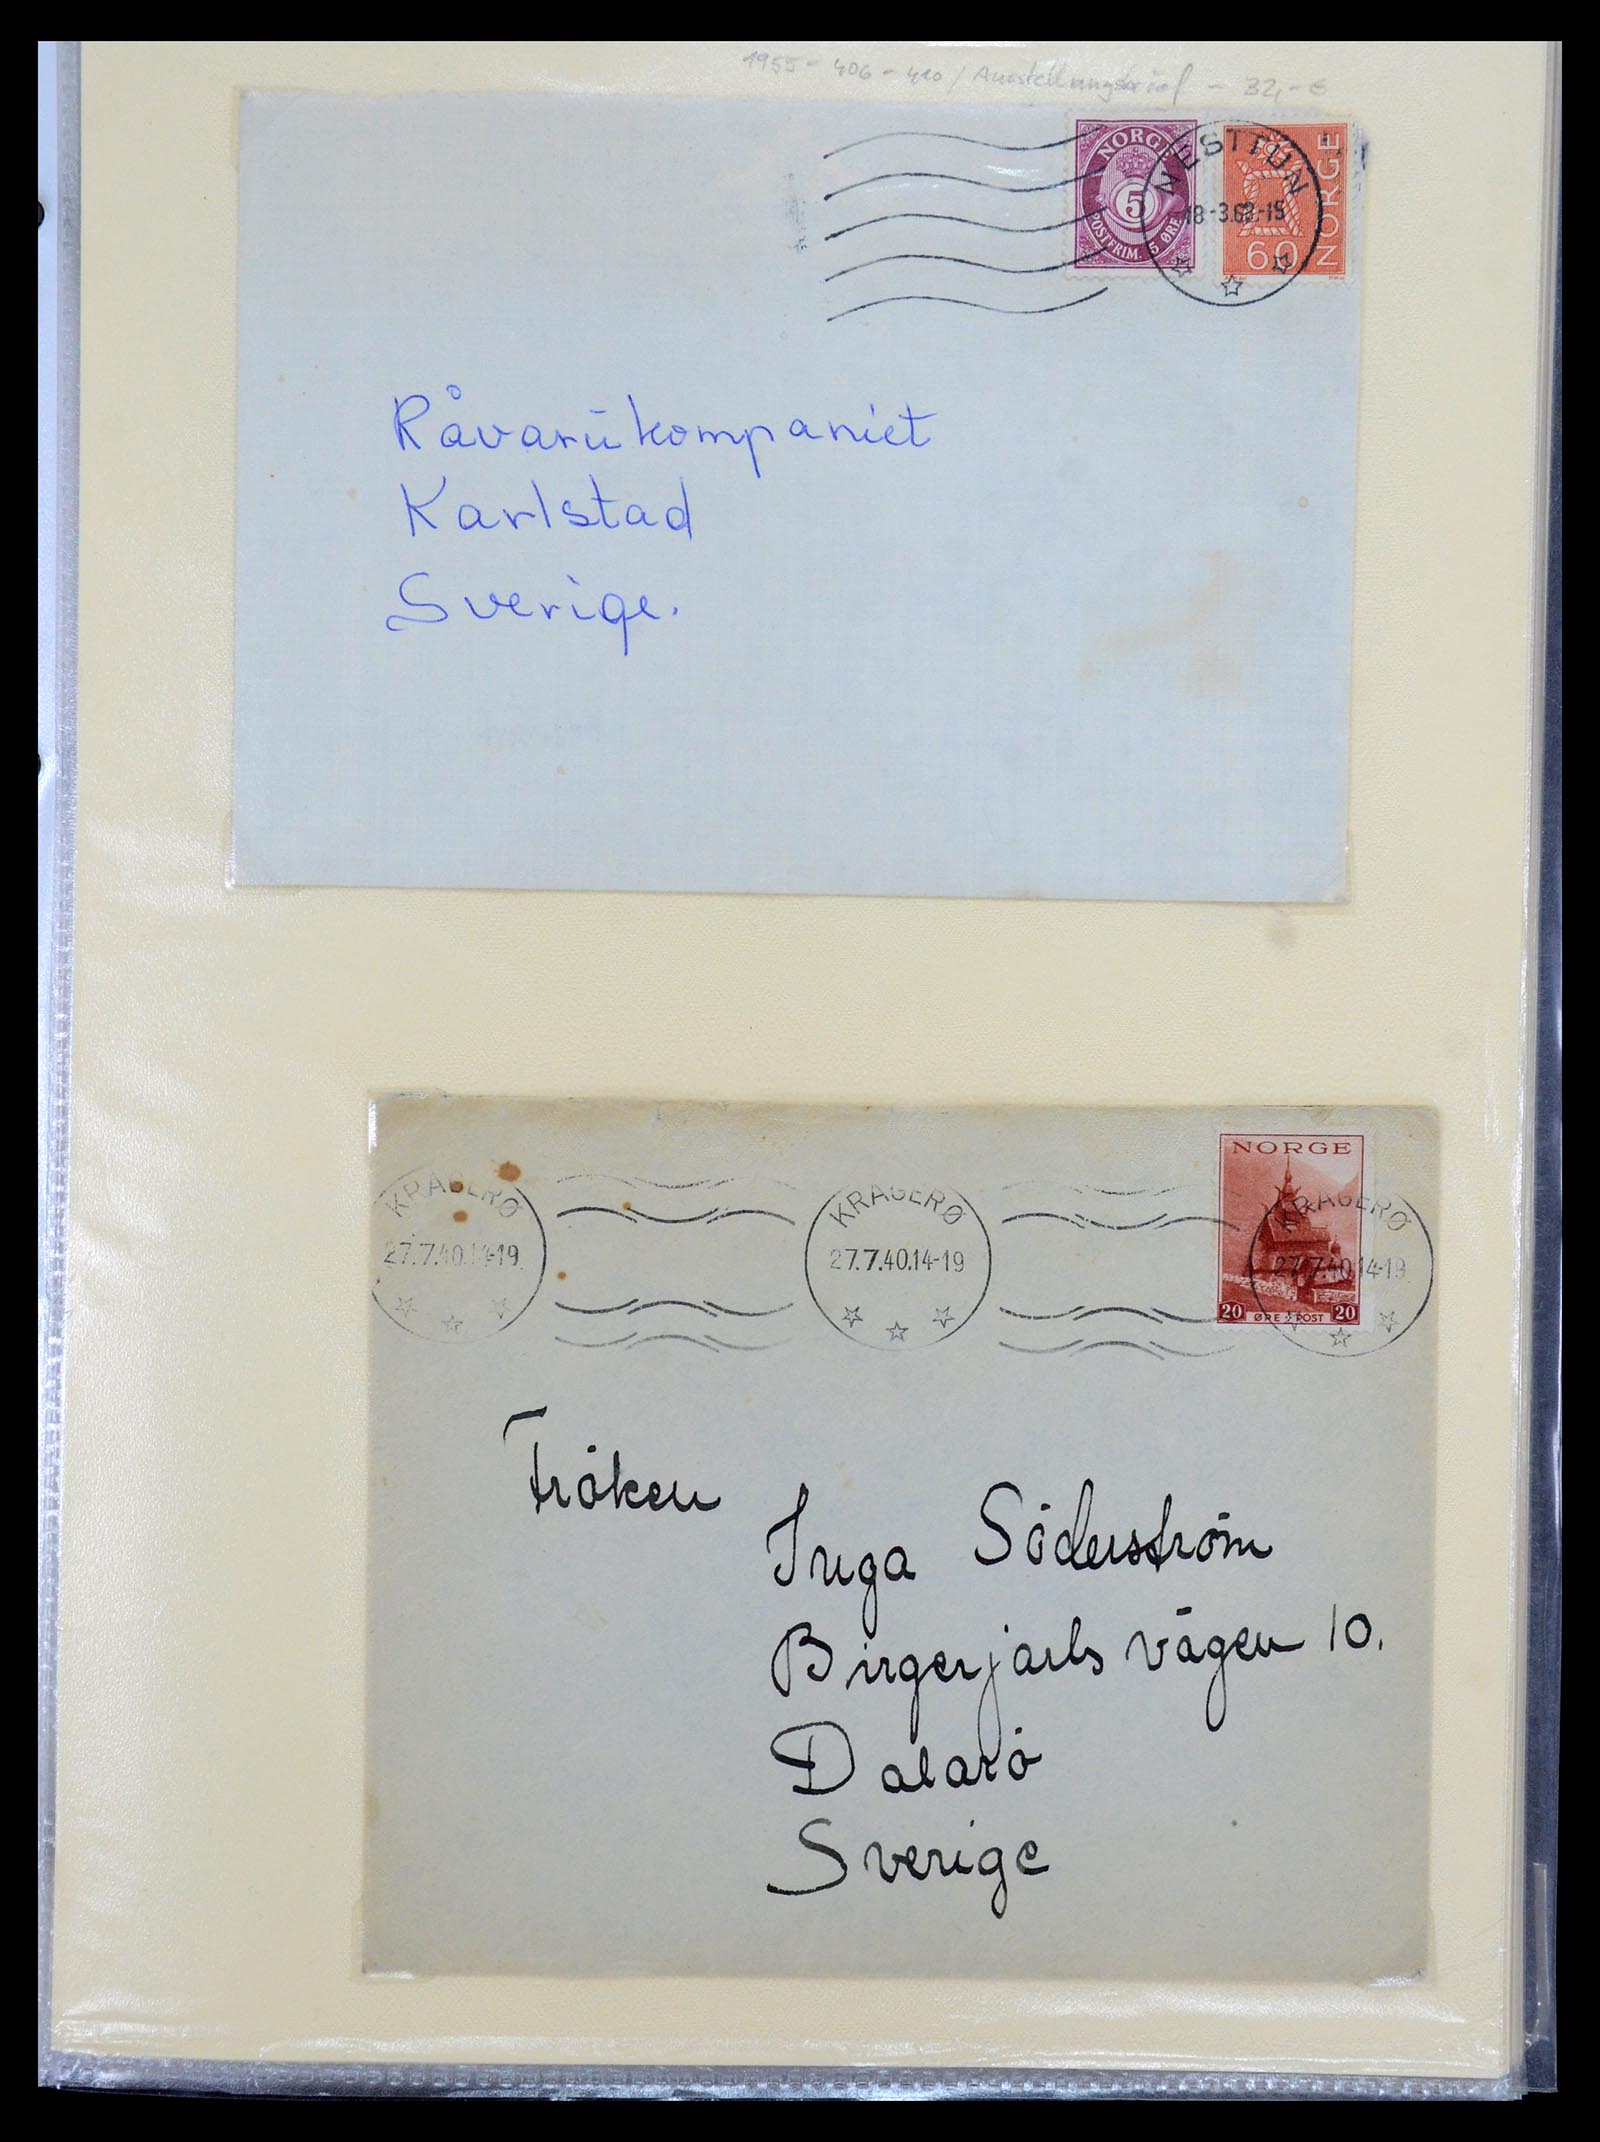 1955 - 406 - 410 / Ausstellungsbrief - 32,- €
NORGE
5
POSTFRIM. 5 ØRE
60
NORGE
NESTTUN
18-3.68-15
Råvarukompaniet
Karlstad
Sverige.
KRAGERØ
27.7.40.14-19
KRAGERØ
27.7.40.14-19
NORGE
20 ØRE POST 20
KRAGERØ
27.7.40.14-19
Fröken
Inga Söderström
Birgerjarls vägen 10.
Dalarö
Sverige